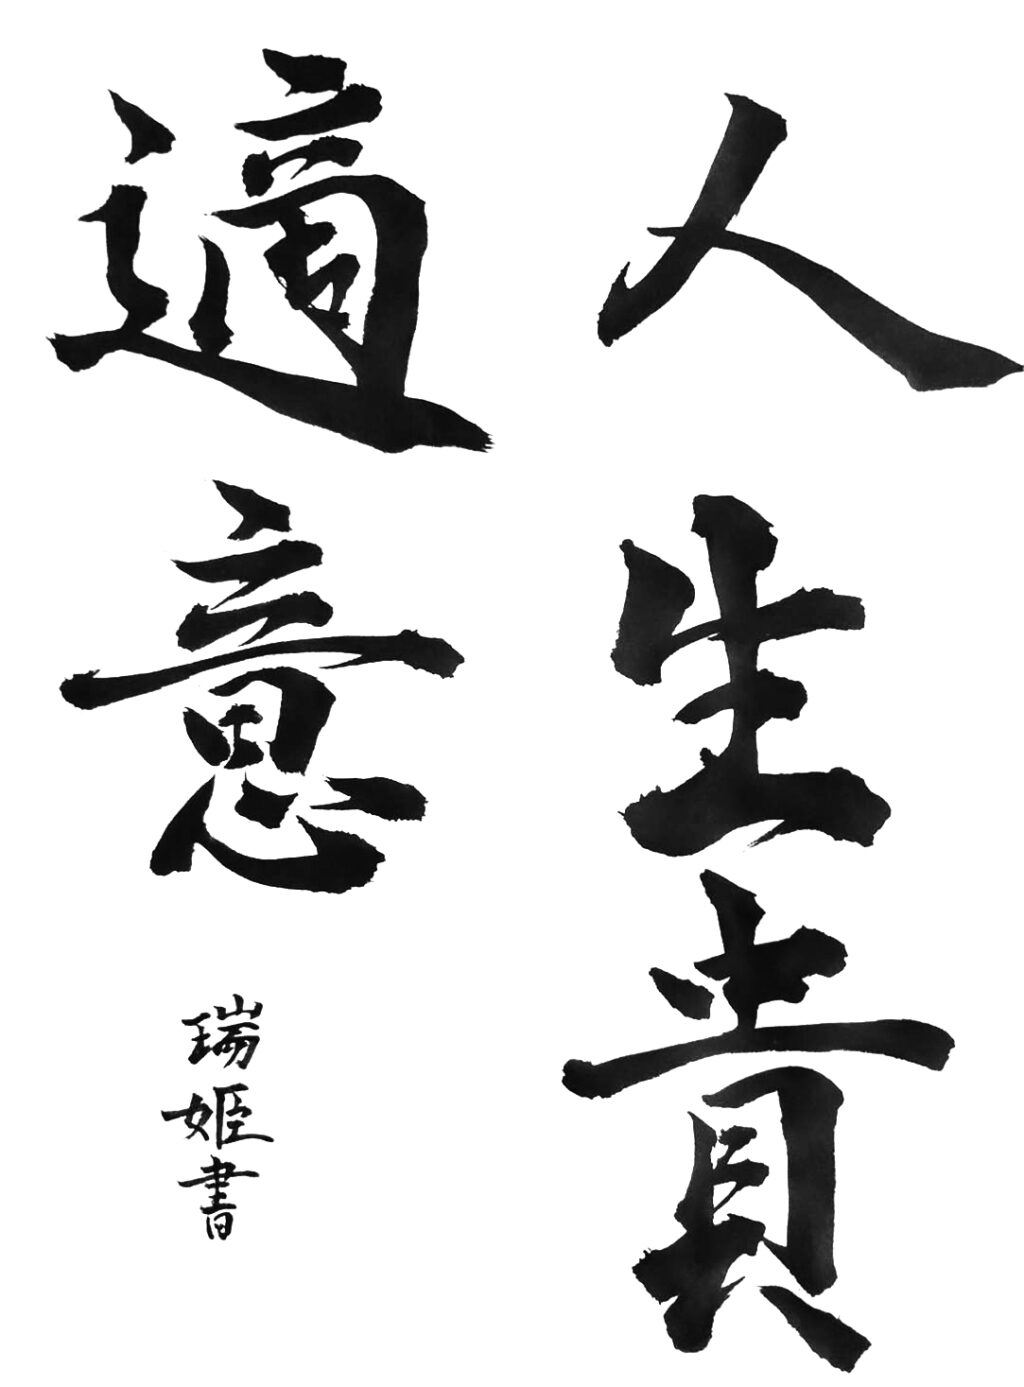 人生貴
適意
瑞姫書